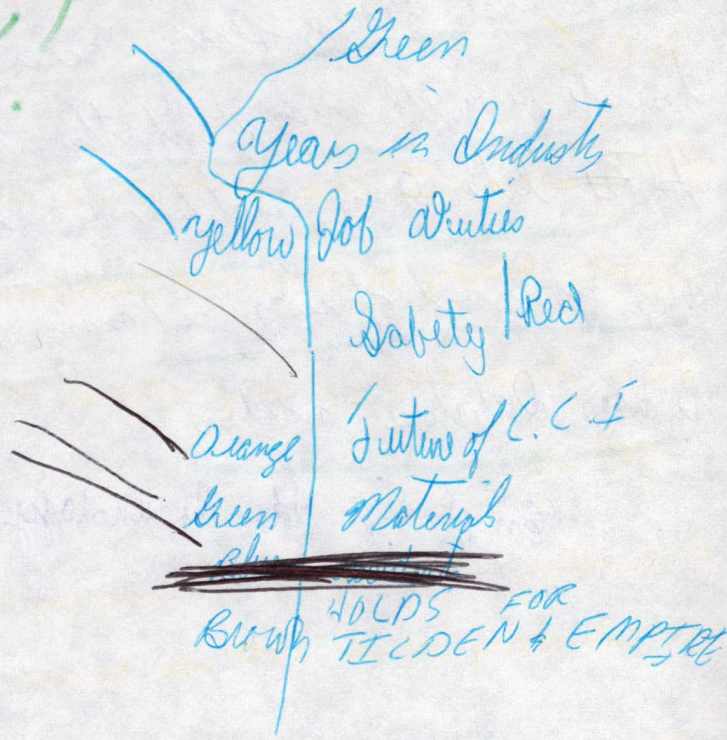 Green
Years in Industry
Yellow Job Duties
Safety Red
Orange Future of C.C.I
Green Materials
Blue
HOLDS FOR
Brown TILDEN & EMPIRE